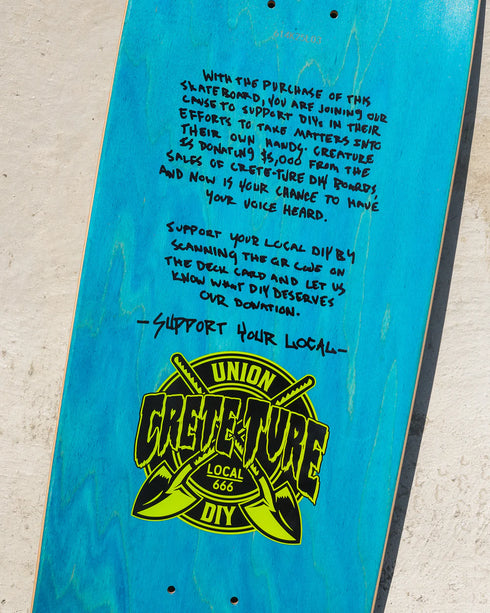 WITH THE PURCHASE OF THIS
SKATEBOARD, YOU ARE JOINING OUR
CAUSE TO SUPPORT DIYs IN THEIR
EFFORTS TO TAKE MATTERS INTO
THEIR OWN HANDS. CREATURE
IS DONATING $5,000 FROM THE
SALES OF CRETE-TURE DIY BOARDS,
AND NOW IS YOUR CHANCE TO HAVE
YOUR VOICE HEARD.
SUPPORT YOUR LOCAL DIY BY
SCANNING THE QR CODE ON
THE DECK CARD AND LET US
KNOW WHAT DIY DESERVES
OUR DONATION.
-SUPPORT YOUR LOCAL-
UNION
CRETE-TURE
LOCAL
666
DIY